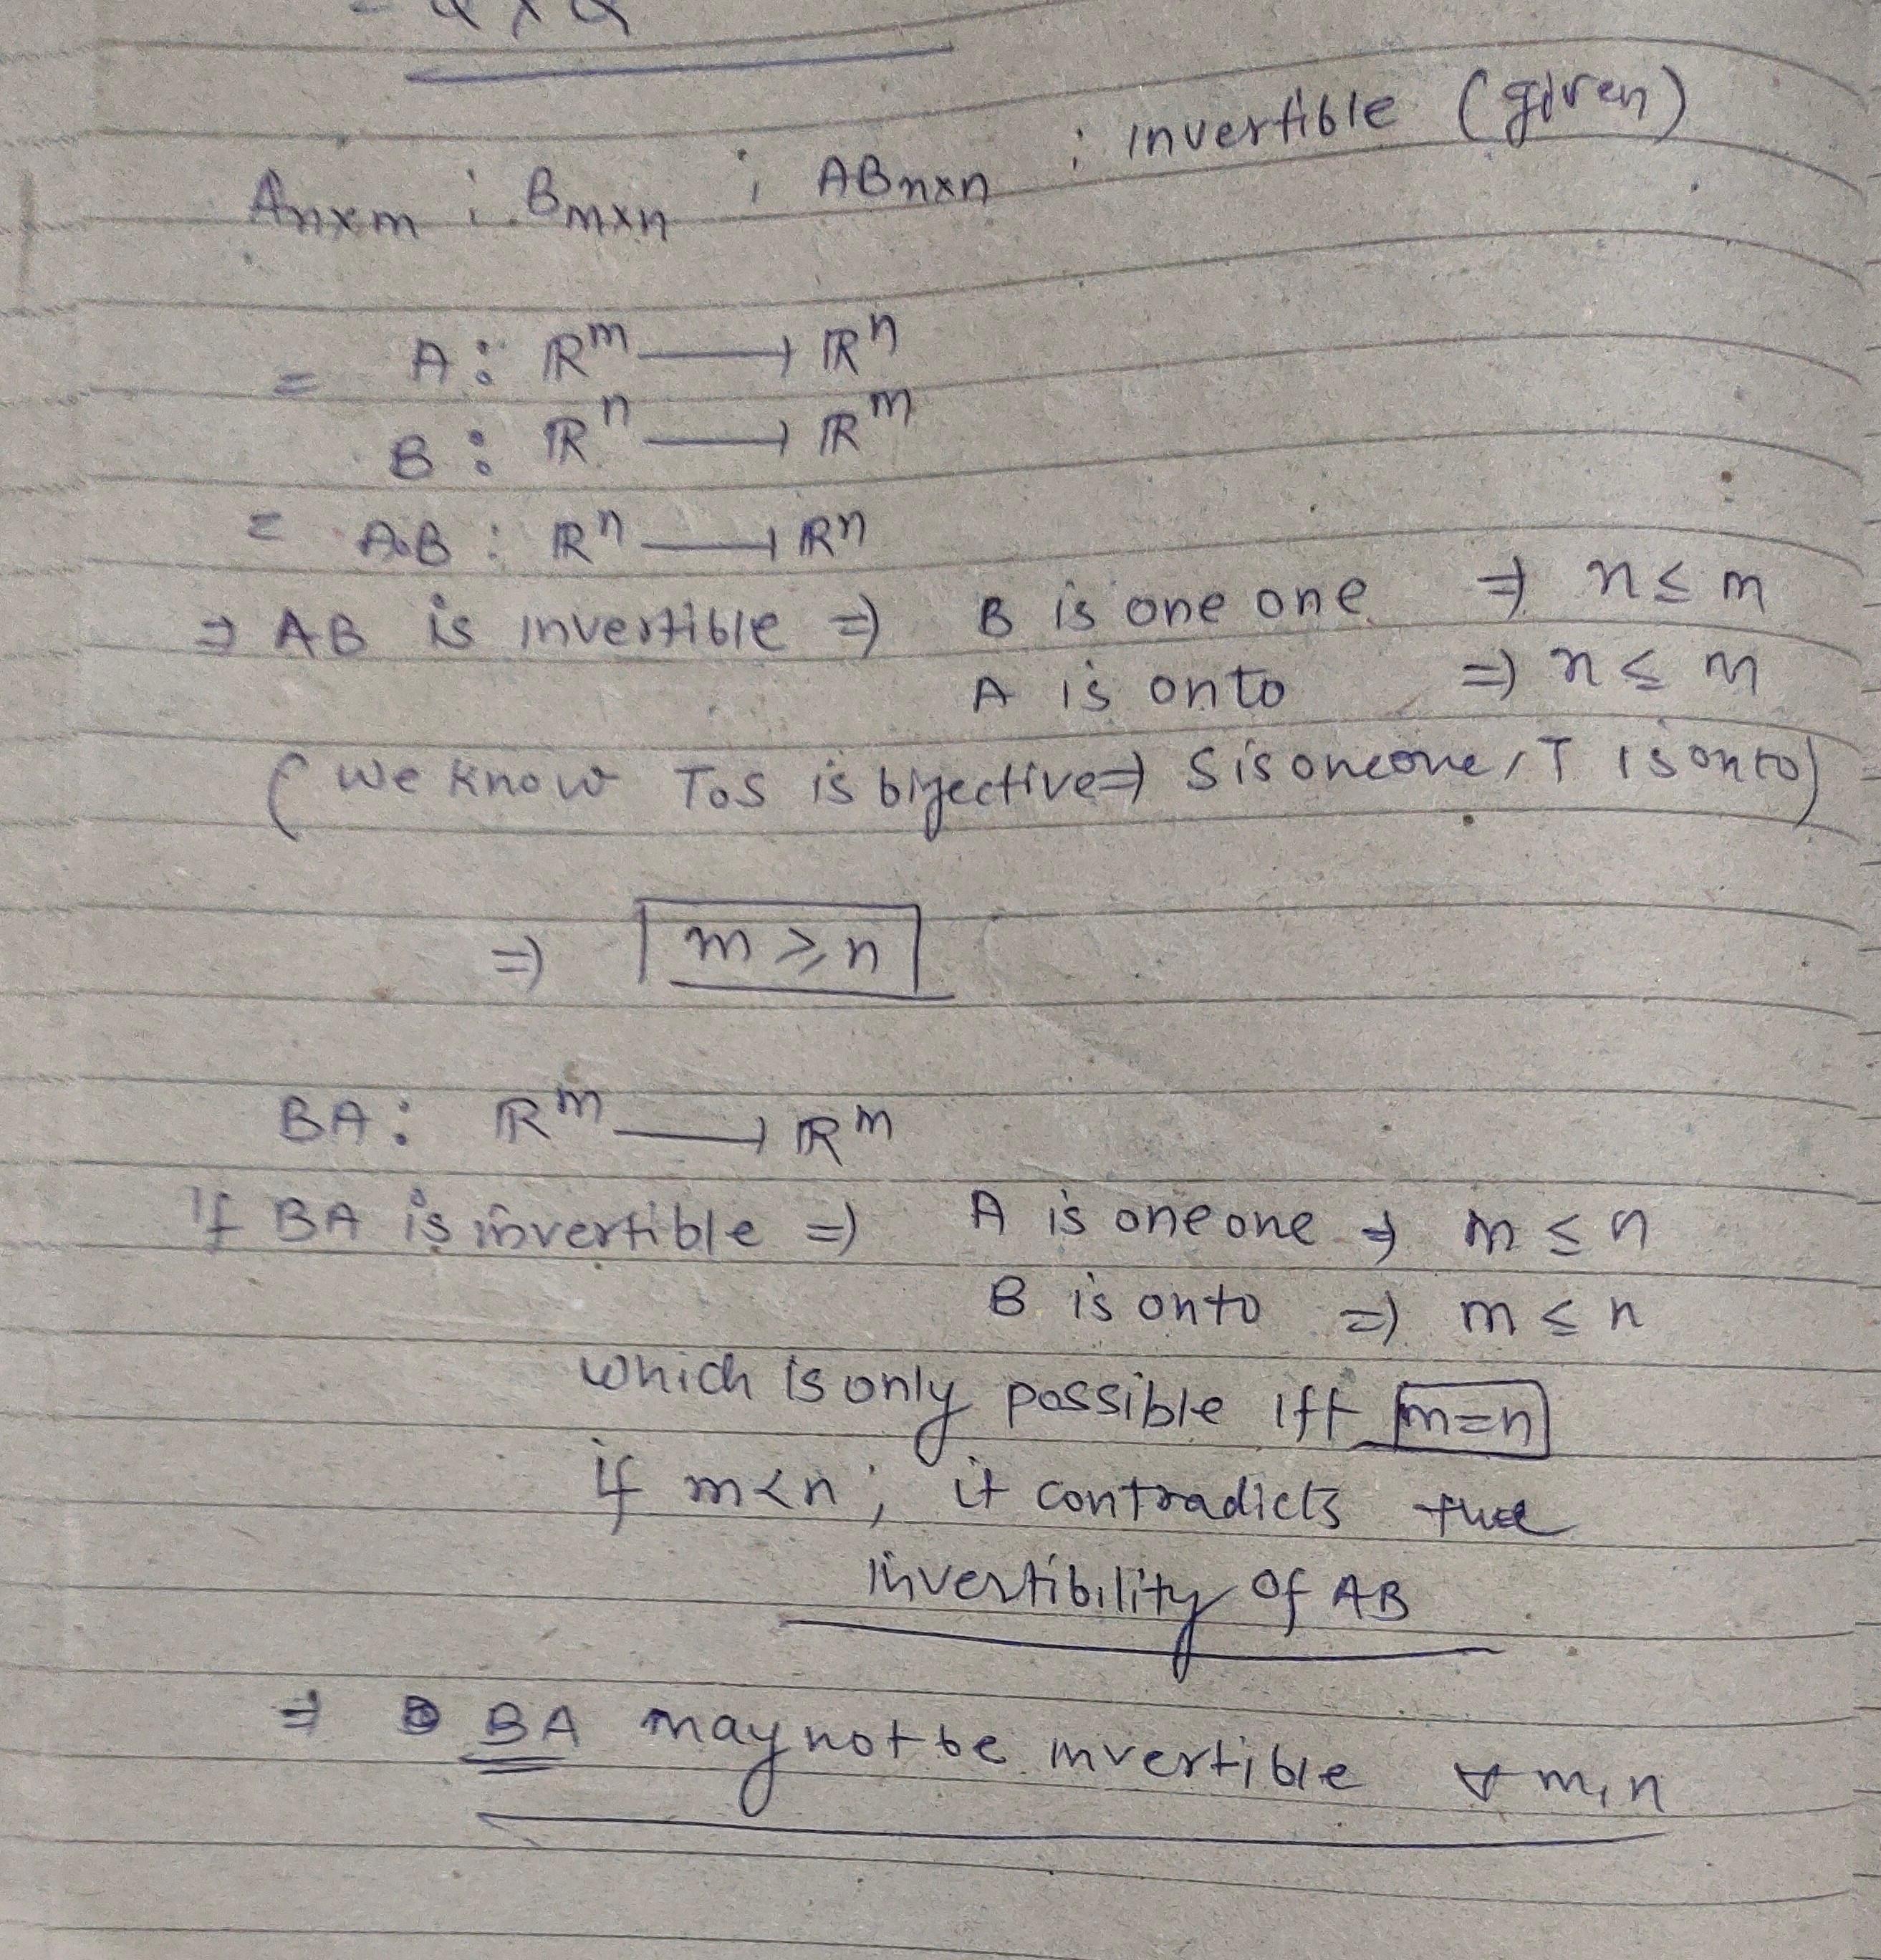 A n×m ; B m×n ; AB n×n ; invertible (given)
= A : ℝ^m ⟶ ℝ^n
B : ℝ^n ⟶ ℝ^m
= A∘B : ℝ^n ⟶ ℝ^n
⇒ AB is invertible ⇒ B is one one ⇒ n ≤ m
A is onto ⇒ n ≤ m
( We know T∘S is bijective ⇒ S is oneone, T is onto)
⇒ m ≥ n
BA : ℝ^m ⟶ ℝ^m
If BA is invertible ⇒ A is one one ⇒ m ≤ n
B is onto ⇒ m ≤ n
which is only possible iff m=n
if m<n ; it contradicts the
invertibility of AB
⇒ BA may not be invertible ∀ m, n